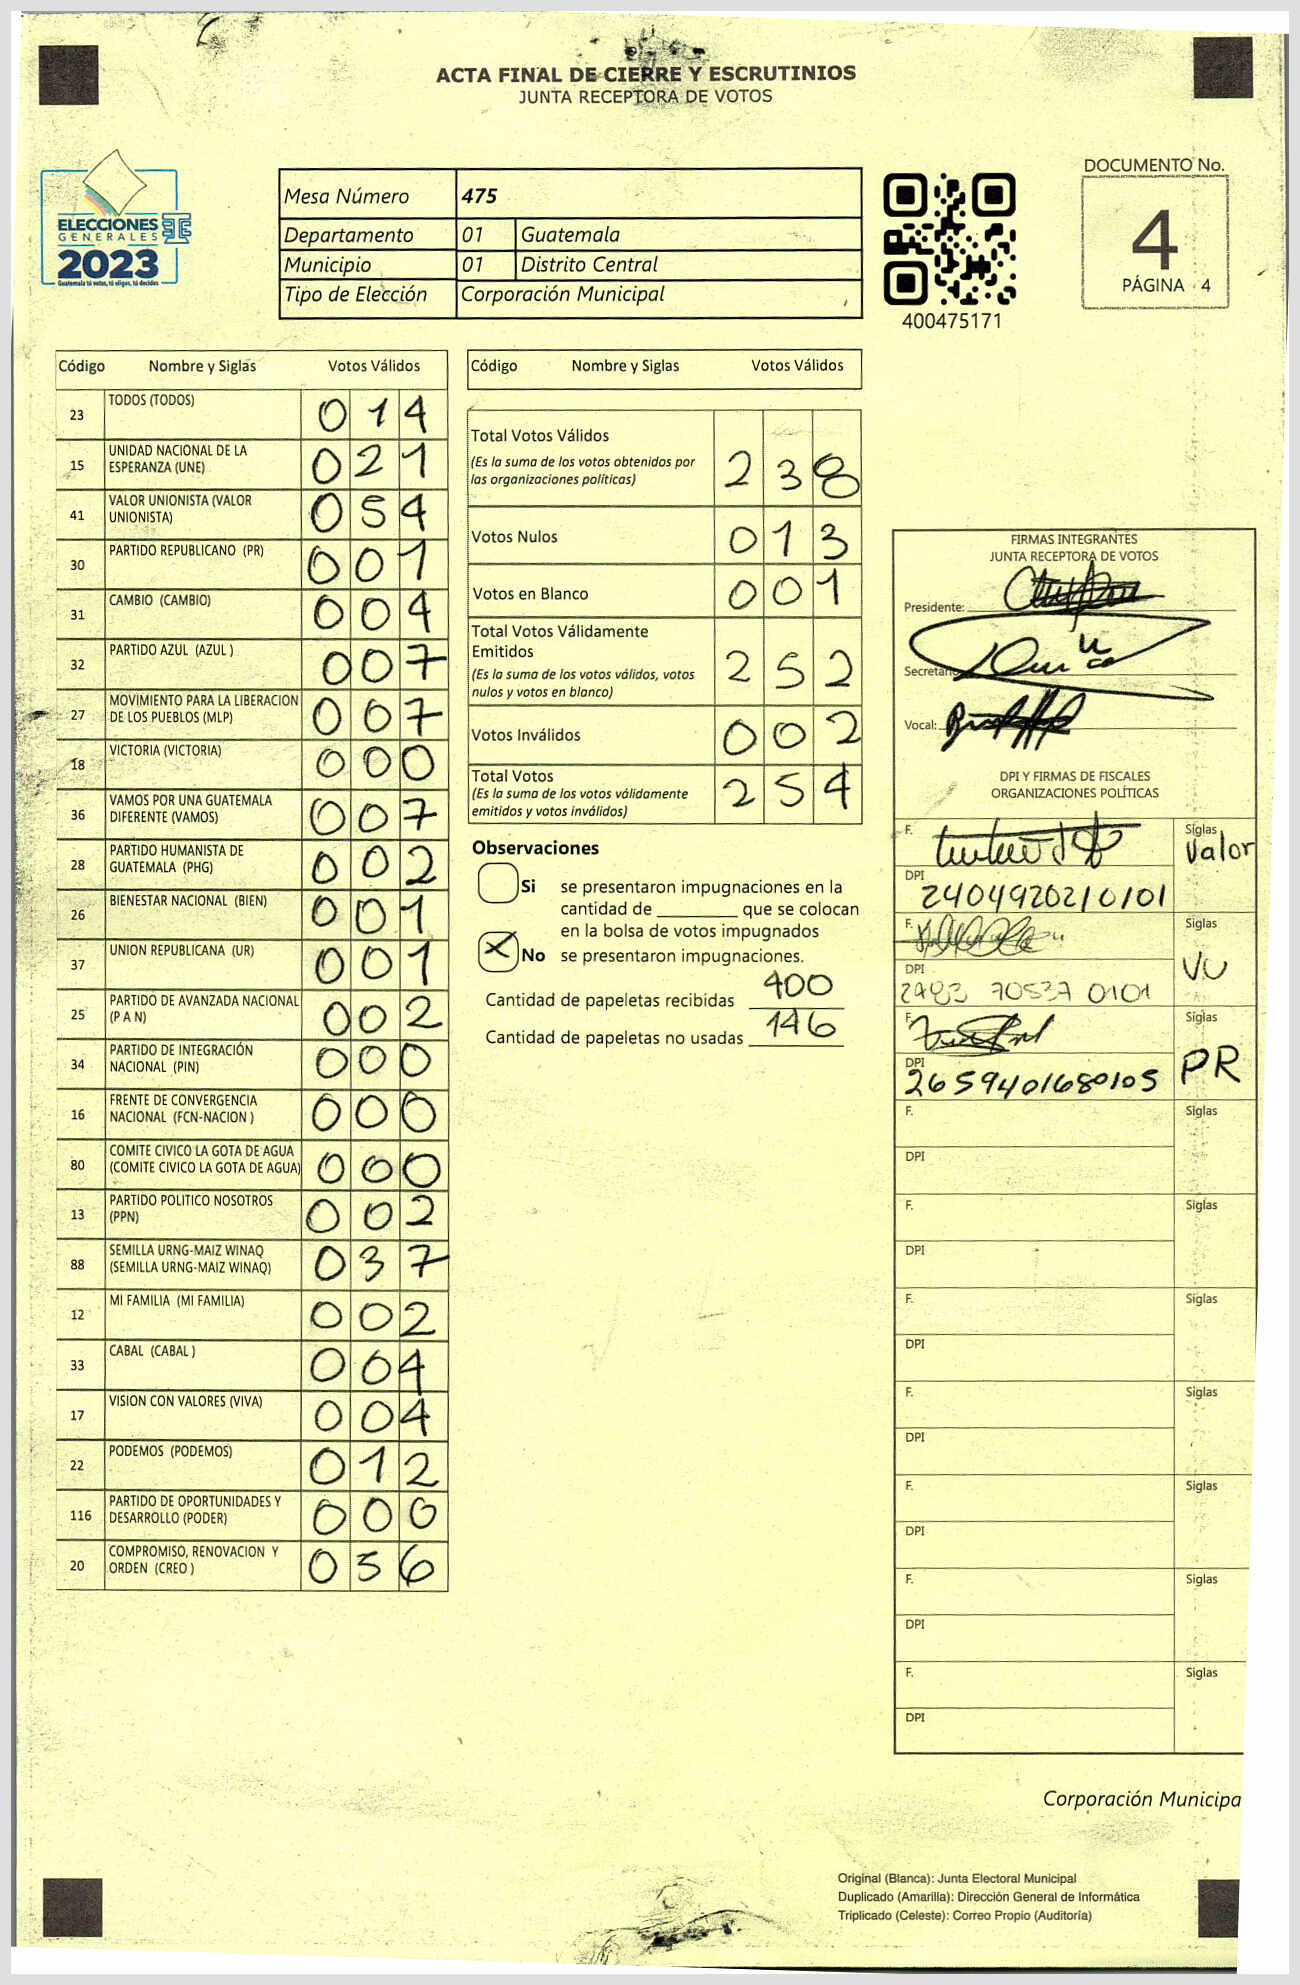 ACTA FINAL DE CIERRE Y ESCRUTINIOS
JUNTA RECEPTORA DE VOTOS
ELECCIONES
GENERALES
2023
Guatemala tú votas, tú eliges, tú decides
Mesa Número 475
Departamento 01 Guatemala
Municipio 01 Distrito Central
Tipo de Elección Corporación Municipal
400475171
DOCUMENTO No.
4
PÁGINA 4
Código Nombre y Siglas Votos Válidos
23 TODOS (TODOS) 014
15 UNIDAD NACIONAL DE LA
ESPERANZA (UNE) 021
41 VALOR UNIONISTA (VALOR
UNIONISTA) 054
30 PARTIDO REPUBLICANO (PR) 001
31 CAMBIO (CAMBIO) 004
32 PARTIDO AZUL (AZUL ) 007
27 MOVIMIENTO PARA LA LIBERACION
DE LOS PUEBLOS (MLP) 007
18 VICTORIA (VICTORIA) 000
36 VAMOS POR UNA GUATEMALA
DIFERENTE (VAMOS) 007
28 PARTIDO HUMANISTA DE
GUATEMALA (PHG) 002
26 BIENESTAR NACIONAL (BIEN) 001
37 UNION REPUBLICANA (UR) 001
25 PARTIDO DE AVANZADA NACIONAL
(P A N) 002
34 PARTIDO DE INTEGRACIÓN
NACIONAL (PIN) 000
16 FRENTE DE CONVERGENCIA
NACIONAL (FCN-NACION ) 000
80 COMITE CIVICO LA GOTA DE AGUA
(COMITE CIVICO LA GOTA DE AGUA) 000
13 PARTIDO POLITICO NOSOTROS
(PPN) 002
88 SEMILLA URNG-MAIZ WINAQ
(SEMILLA URNG-MAIZ WINAQ) 037
12 MI FAMILIA (MI FAMILIA) 002
33 CABAL (CABAL ) 004
17 VISION CON VALORES (VIVA) 004
22 PODEMOS (PODEMOS) 012
116 PARTIDO DE OPORTUNIDADES Y
DESARROLLO (PODER) 000
20 COMPROMISO, RENOVACION Y
ORDEN (CREO ) 056
Código Nombre y Siglas Votos Válidos
Total Votos Válidos
(Es la suma de los votos obtenidos por
las organizaciones políticas) 238
Votos Nulos 013
Votos en Blanco 001
Total Votos Válidamente
Emitidos
(Es la suma de los votos válidos, votos
nulos y votos en blanco) 252
Votos Inválidos 002
Total Votos
(Es la suma de los votos válidamente
emitidos y votos inválidos) 254
Observaciones
Si se presentaron impugnaciones en la
cantidad de ________ que se colocan
en la bolsa de votos impugnados
X No se presentaron impugnaciones.
Cantidad de papeletas recibidas 400
Cantidad de papeletas no usadas 146
FIRMAS INTEGRANTES
JUNTA RECEPTORA DE VOTOS
Presidente:
Secretario
Vocal:
DPI Y FIRMAS DE FISCALES
ORGANIZACIONES POLÍTICAS
F. Siglas
Valor
DPI
2404920210101
F. Siglas
VU
DPI
2483 70537 0101
F. Siglas
PR
DPI
2659401680105
F. Siglas
DPI
F. Siglas
DPI
F. Siglas
DPI
F. Siglas
DPI
F. Siglas
DPI
F. Siglas
DPI
F. Siglas
DPI
Corporación Municipa
Original (Blanca): Junta Electoral Municipal
Duplicado (Amarilla): Dirección General de Informática
Triplicado (Celeste): Correo Propio (Auditoría)